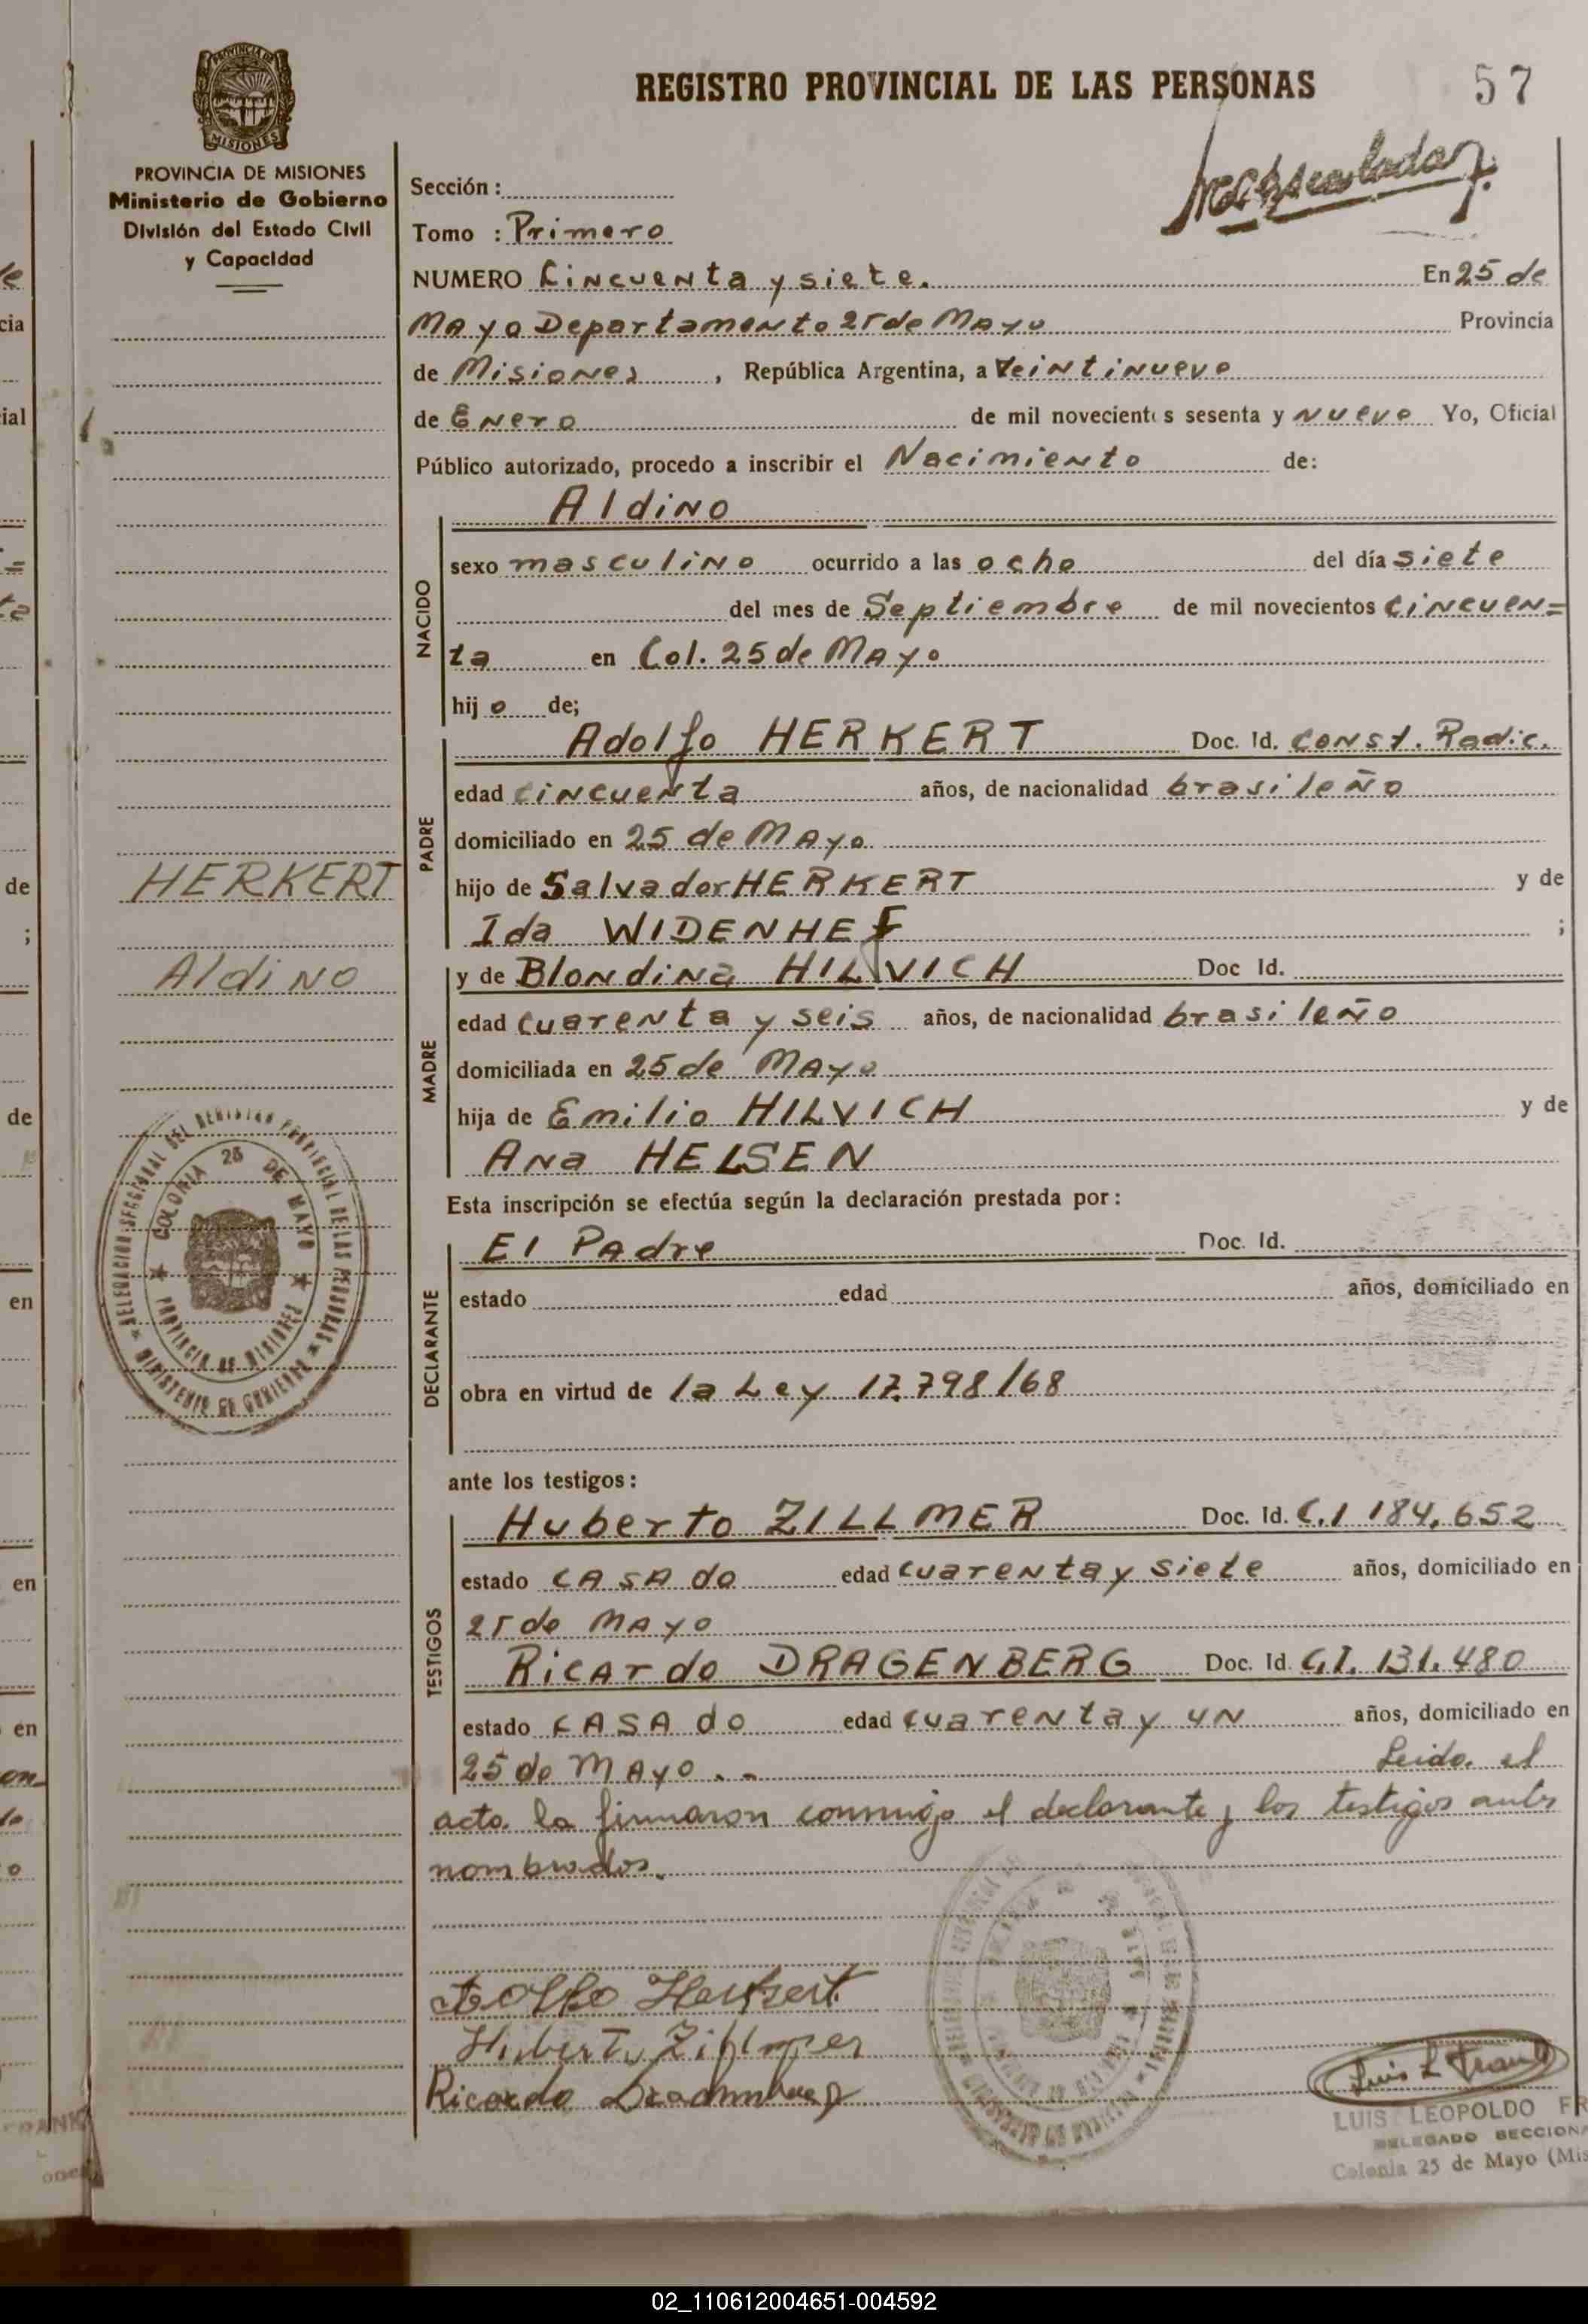 REGISTRO PROVINCIAL DE LAS PERSONAS
57
MISIONES
PROVINCIA DE MISIONES
Ministerio de Gobierno
División del Estado Civil
y Capacidad
Sección :
Tomo : Primero
NUMERO Cincuenta y siete. En 25 de
Mayo Departamento 25 de Mayo Provincia
de Misiones, República Argentina, a Veintinueve
de Enero de mil novecientos sesenta y nueve Yo, Oficial
Público autorizado, procedo a inscribir el Nacimiento de:
Aldino
NACIDO
sexo masculino ocurrido a las ocho del día siete
del mes de Septiembre de mil novecientos cincuen=
ta en Col. 25 de Mayo
hij o de;
Adolfo HERKERT Doc. Id. Const. Radic.
PADRE
edad cincuenta años, de nacionalidad brasileño
domiciliado en 25 de Mayo
hijo de Salvador HERKERT y de
Ida WIDENHEF ;
HERKERT
Aldino
y de Blondina HILVICH Doc Id.
MADRE
edad cuarenta y seis años, de nacionalidad brasileño
domiciliada en 25 de Mayo
hija de Emilio HILVICH y de
Ana HELSEN
Esta inscripción se efectúa según la declaración prestada por :
El Padre Doc. Id.
DECLARANTE
estado edad años, domiciliado en
obra en virtud de la Ley 17.798/68
DELEGACION SECCIONAL DEL REGISTRO PROVINCIAL DE LAS PERSONAS
COLONIA 25 DE MAYO
PROVINCIA DE MISIONES
MINISTERIO DE GOBIERNO
ante los testigos :
Huberto ZILLMER Doc. Id. C.I 184.652
TESTIGOS
estado CASAdo edad cuarenta y siete años, domiciliado en
25 de Mayo
Ricardo DRAGENBERG Doc. Id. C.I. 131.480
estado CASAdo edad cuarenta y un años, domiciliado en
25 de Mayo . - Leida el
acta la firmaron conmigo el declarante y los testigos antes
nombrados.
Adolfo Herkert
Hubert Zillmer
Ricardo
Luis L Frank
LUIS LEOPOLDO FR
DELEGADO SECCIONA
Colonia 25 de Mayo (Mis
02_110612004651-004592